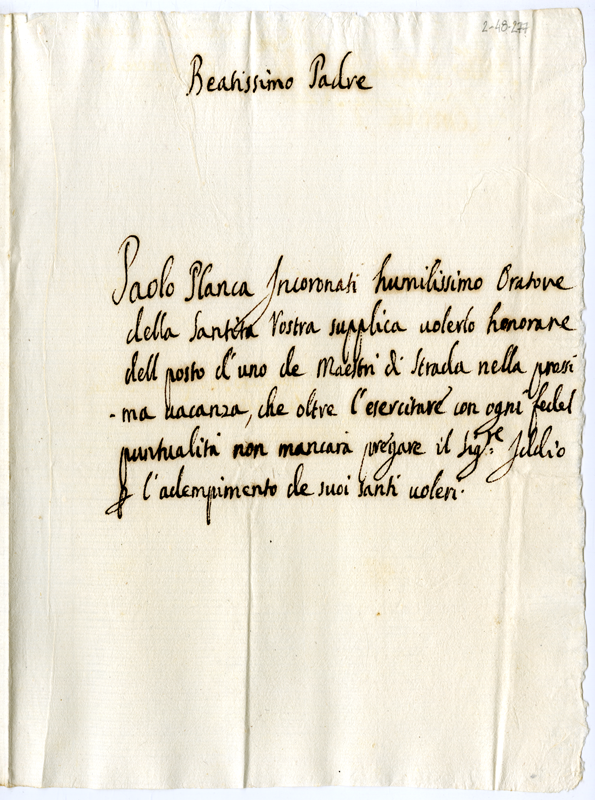 2-48-277
Beatissimo Padre
Paolo Planca Incoronati humilissimo Oratore
della Santità Vostra supplica uolerlo honorare
dell posto d'uno de Maestri di Strada nella prossi
-ma uacanza, che oltre l'esercitare con ogni fedel
puntualità non mancarà pregare il Sig.re Iddio
ꝑ l'adempimento de suoi santi uoleri.